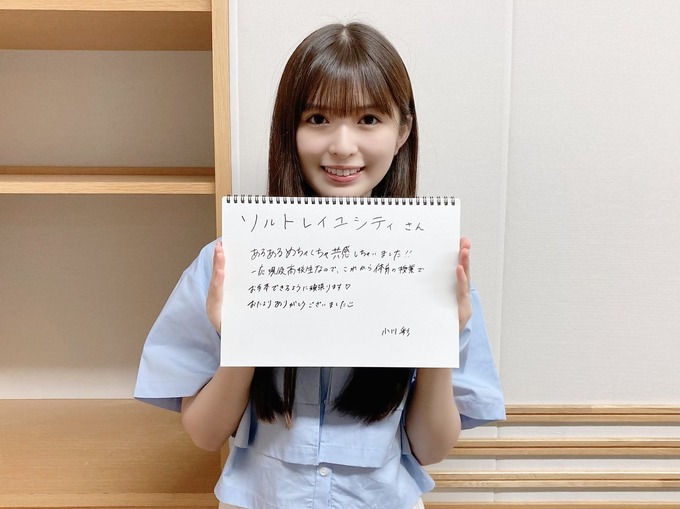 ソルトレイユシティさん
あるあるめちゃくちゃ共感しちゃいました!!
一応現役高校生なので、これから体育の授業で
お手本できるように頑張ります♡
おたよりありがとうございました
小川彩